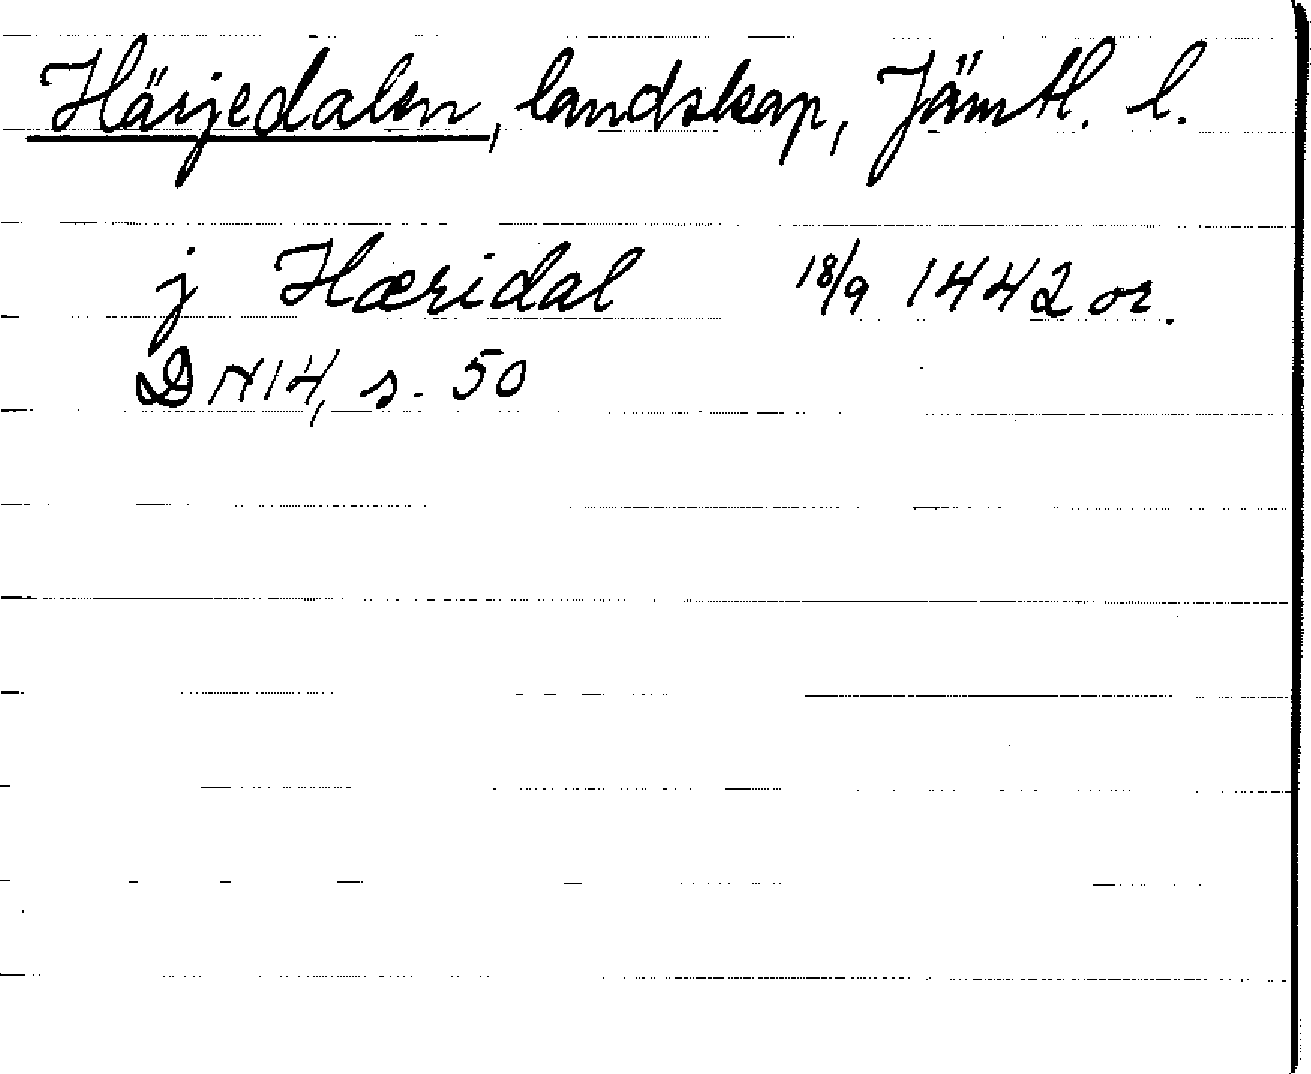 Härjedalen, landskap, Jämtl. l.
j Hæridal 18/9 1442 or.
DN 14, s. 50